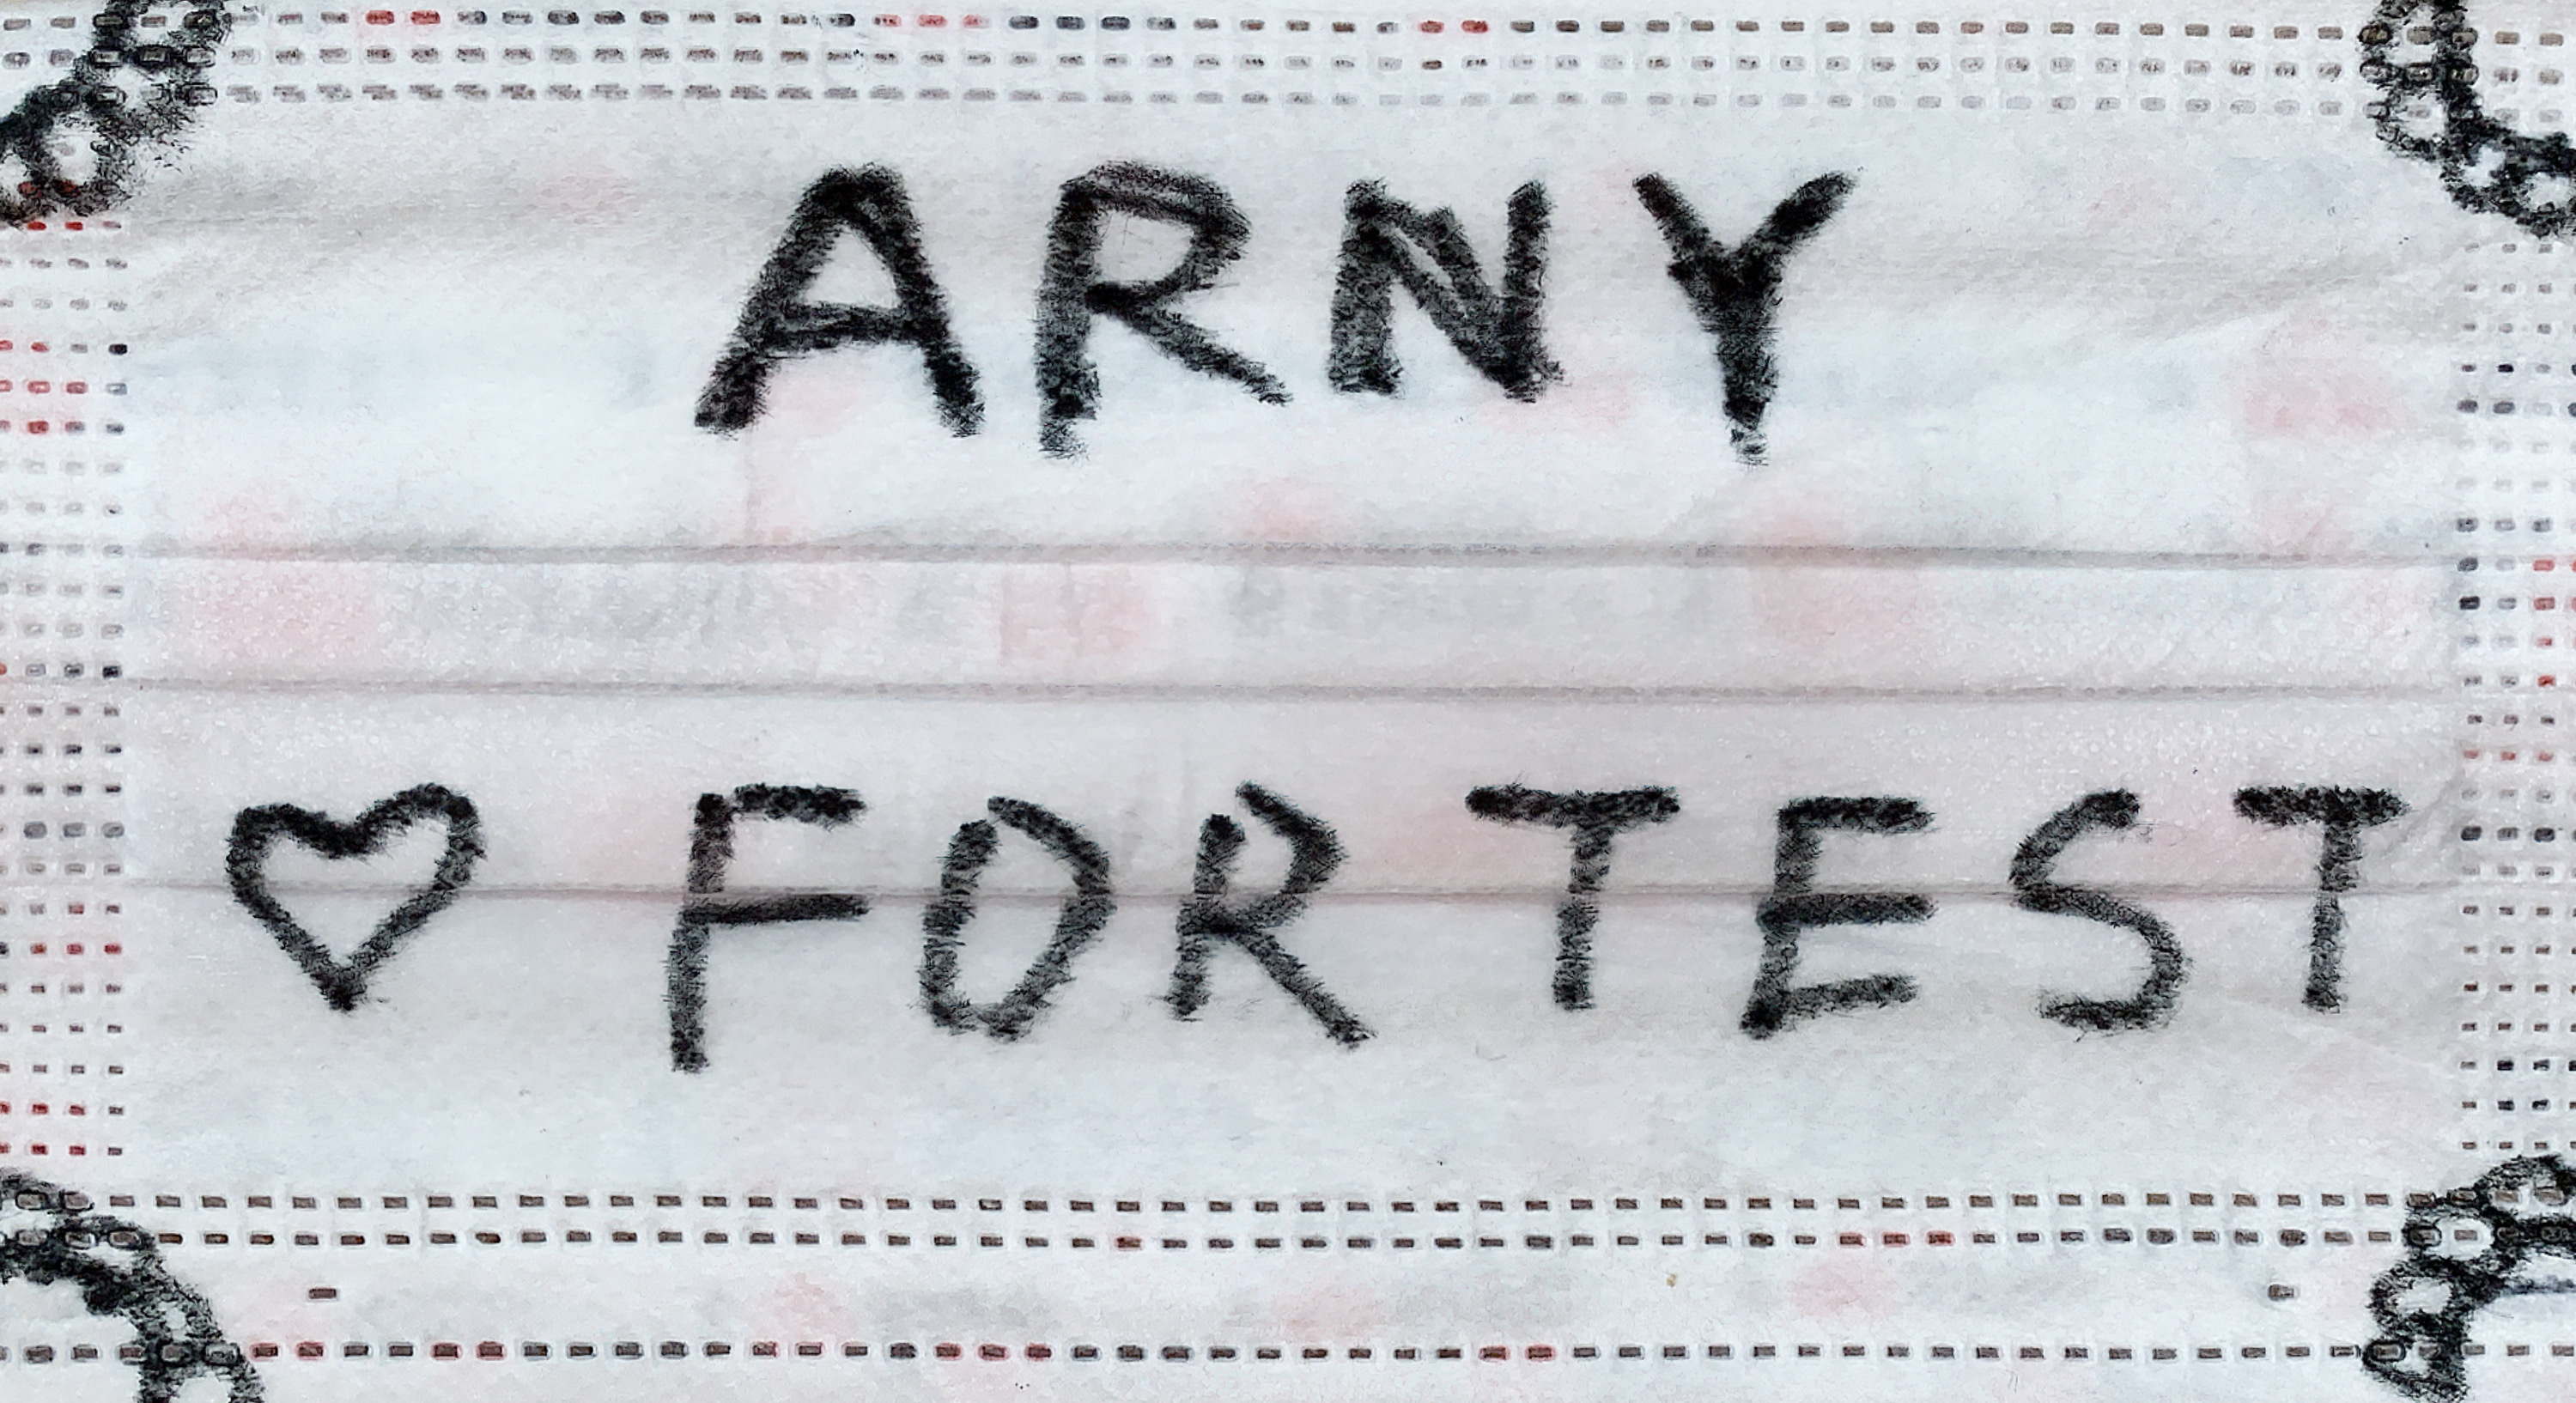 ARNY
♡ FOR TEST